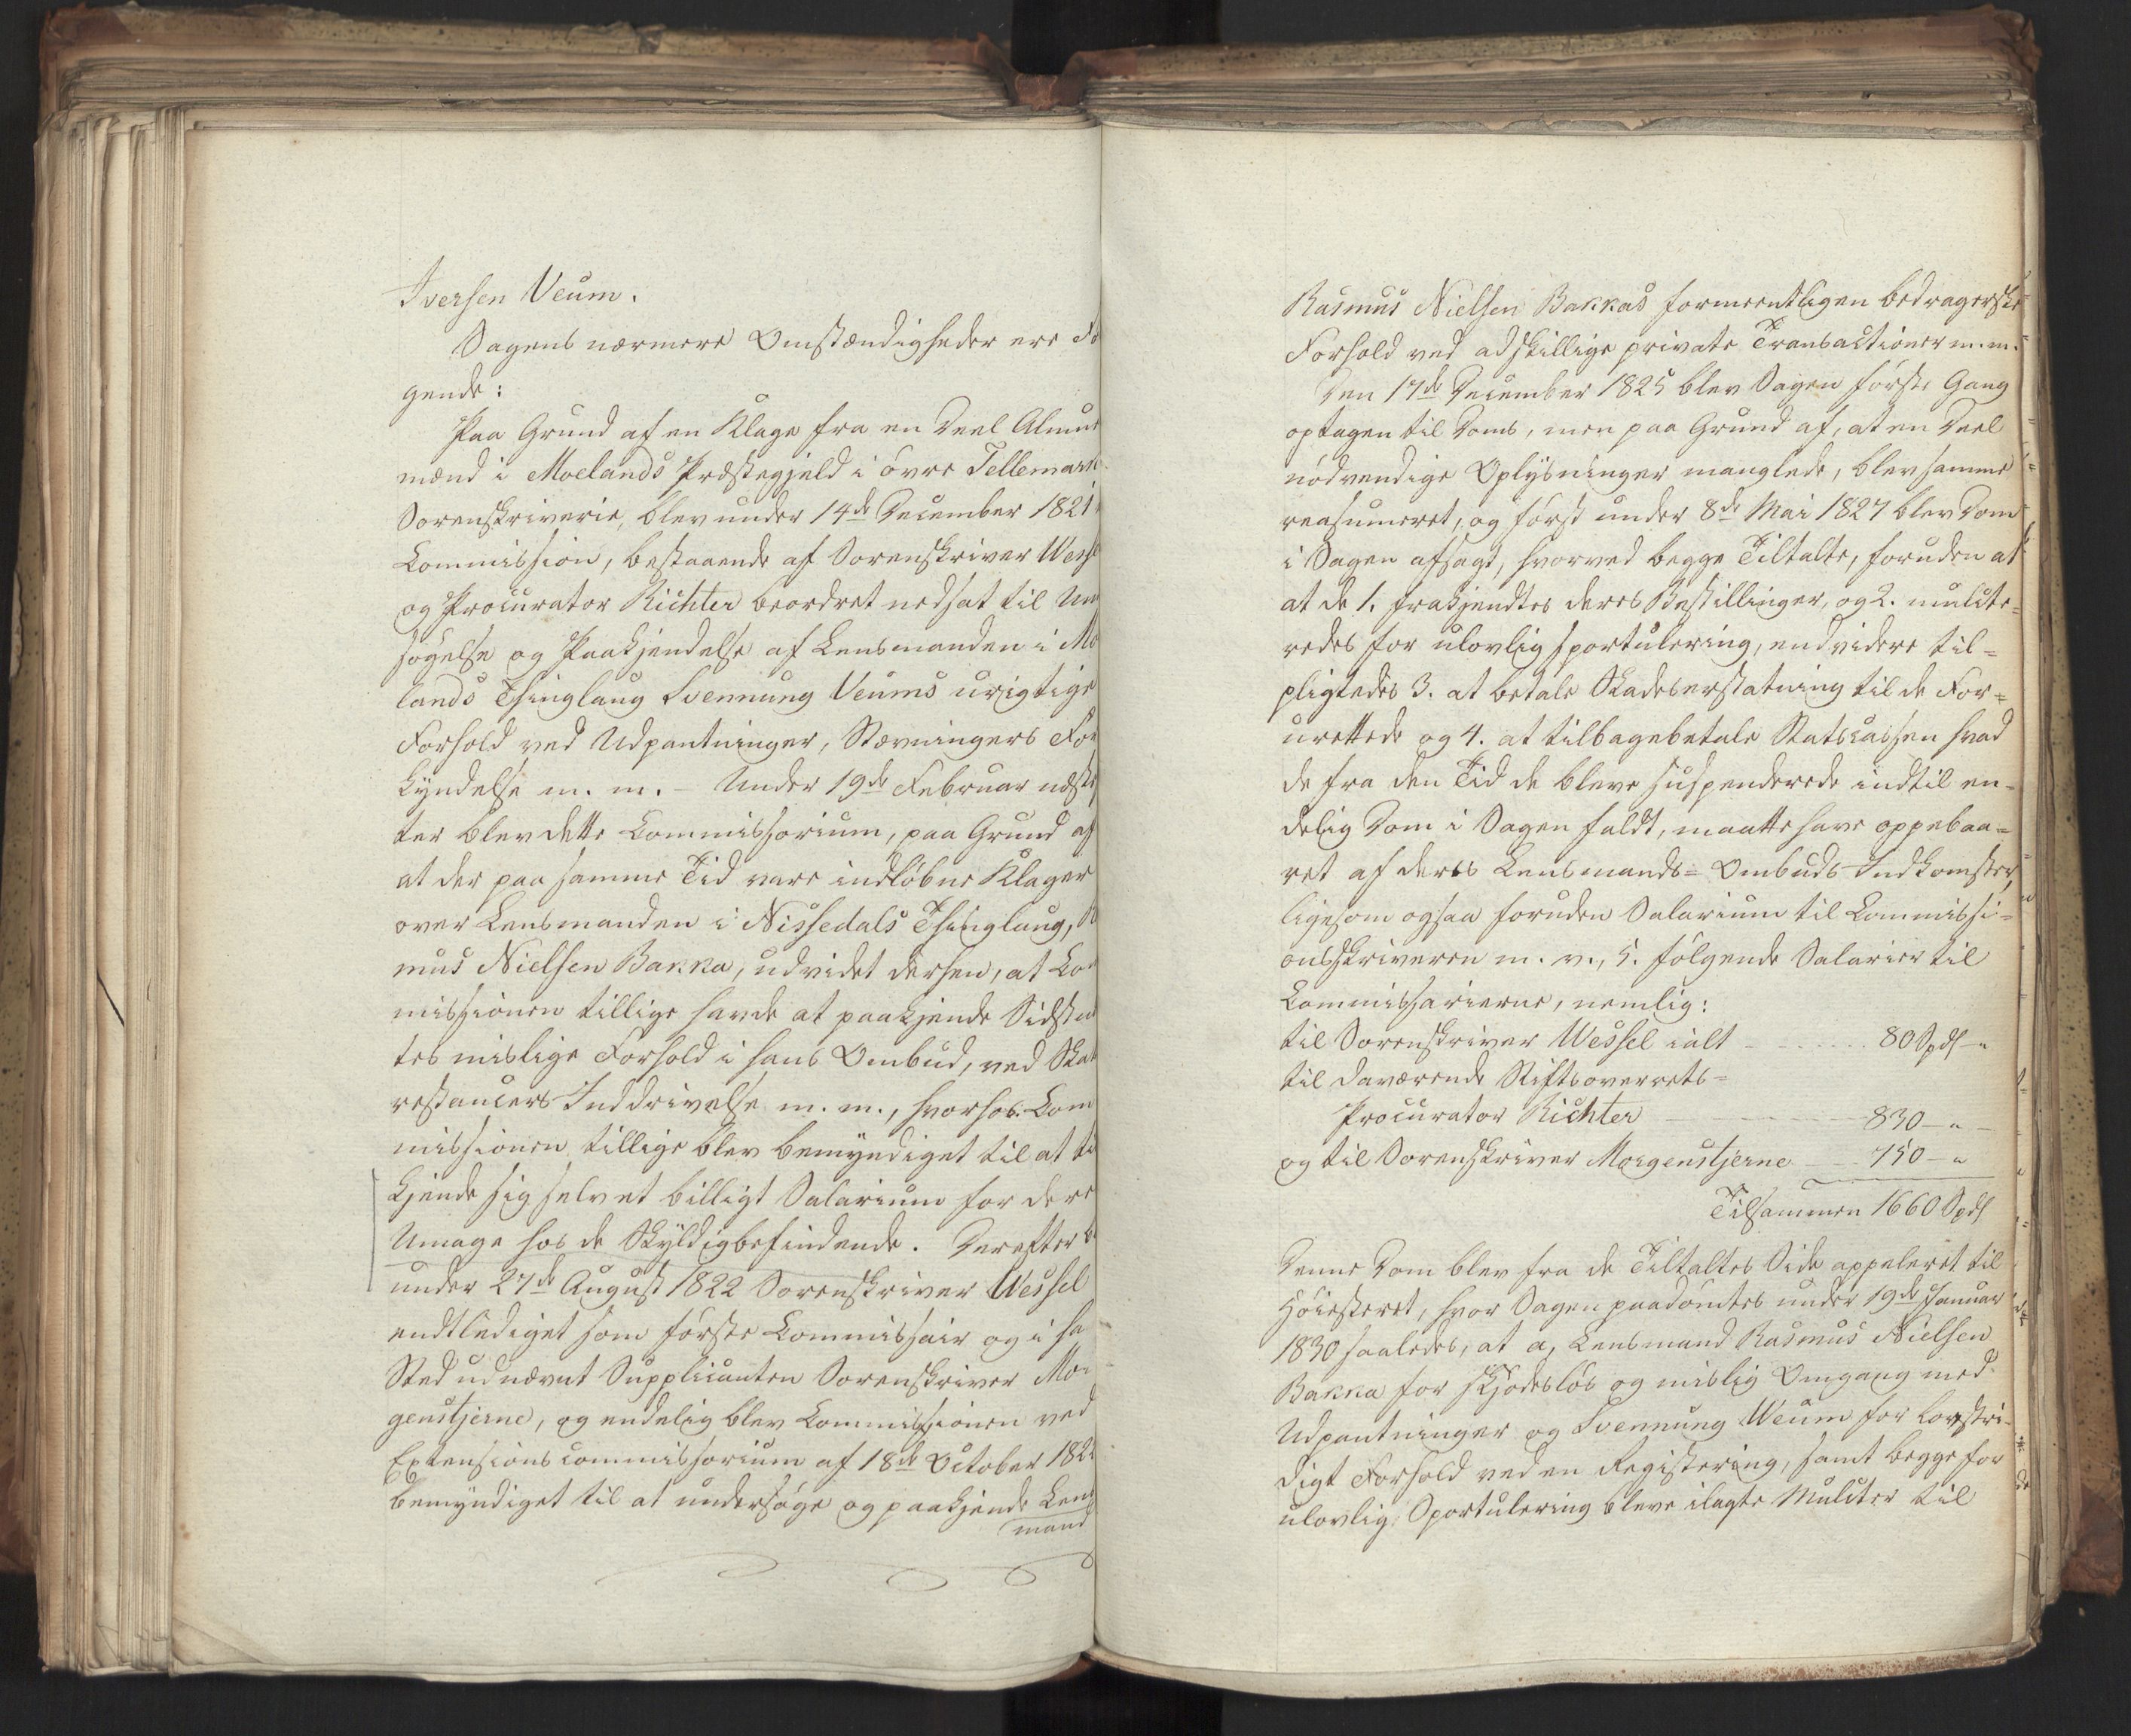 Iversen Veum.
Sagens nærmere Omstændigheder ere Fø
gende:
Paa Grund af en Klage fra en Deel Almue
mænd i Moelands Præstegjeld i øvre Tellemark
Sorenskriverie, blev under 14de December 1821
Commission, bestaaende af Sorenskriver Wess
og Procurator Richter beordret nedsat til Un
søgelse og Paakjendelse af Lensmanden i Mo
lands Thinglaug Svennung Veums urigtige
Forhold ved Udpantninger, Stævningers For
kyndelse m. m. - Under 19de Februar næst
ter blev dette Commissorium, paa Grund af
at der paa samme Tid vare indløbne Klager
over Lensmanden i Nissedals Thinglaug,
mus Nielsen Bakka, udvidet derhen, at Co
missionen tillige havde at paakjende Sidstn
tes mislige Forhold i hans Ombud, ved Skat
restancers Inddrivelse m. m., hvorhos Com
missionen tillige blev bemyndiget til at ti
kjende sig selv et billigt Salarium for dere
Umage hos de Skyldigbefindende. Derefter b
under 27de August 1822 Sorenskriver Wessel
entlediget som første Commissair og i ha
Sted udnævnt Supplicanten Sorenskriver Mor
genstjerne, og endelig blev Commissionen ved
Extensionscommissorium af 18de October 182
bemyndiget til at undersøge og paakjende Lens
mand
Rasmus Nielsen Bakkas formeentligen bedragerske
Forhold ved adskillige private Transactioner m. m.
Den 17de December 1825 blev Sagen første Gang
optagen til Doms, men paa Grund af, at en Deel
nødvendige Oplysninger manglede, blev samme
reasumeret, og først under 8de Mai 1827 blev Dom
i Sagen afsagt, hvorved begge Tiltalte, foruden at
at de 1. frakjendtes deres Bestillinger, og 2. mulcte=
redes for ulovlig sportulering, endvidere til=
pligtedes 3. at betale Skadeserstatning til de For=
urettede og 4. at tilbagebetale Statscassen hvad
de fra den Tid de bleve suspenderede indtil en=
delig Dom i Sagen faldt, maatte have oppebaa=
ret af deres Lensmands= Ombuds Indkomster,
ligesom ogsaa foruden Salarium til Commissi=
onsskriveren m. v., 5. følgende Salarier til
Commissarierne, nemlig:
til Sorenskriver Wessel ialt - - - - - - 80 Spd -"
til daværende Stiftsoverrets=
Procurator Richter - - - - - 830 - " -
og til Sorenskriver Morgenstjerne - - 750 - "
Tilsammen 1660 Spd
Denne Dom blev fra de Tiltaltes Side appeleret til
Høiesteret, hvor Sagen paadømtes under 19de Januar
1830 saaledes, at a, Lensmand Rasmus Nielsen
Bakka for skjødesløs og mislig Omgang med
Udpantninger og Svennung Weum for lovstri=
digt Forhold ved en Registering, samt begge for
ulovlig Sportulering bleve ilagte Mulcter til